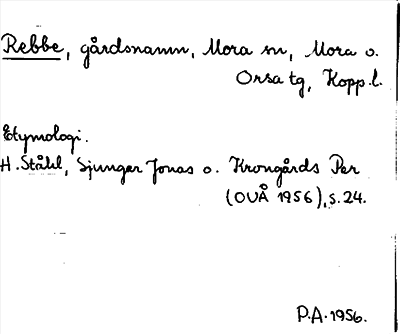 Rebbe, gårdsnamn, Mora sn, Mora o.
Orsa tg, Kopp.l.
Etymologi.
H. Ståhl, Sjunger Jonas o. Krongårds Per
(OUÅ 1956), s. 24.
P.A. 1956.